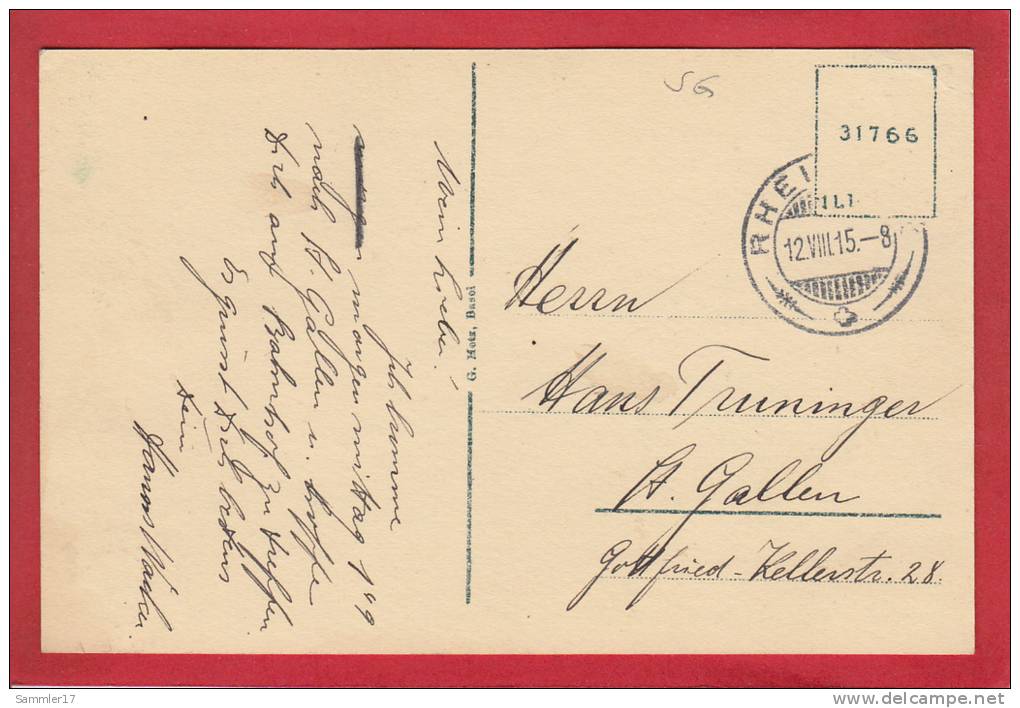 Mein Lieber!
Ich komme
morgen mittag 1 49
nach St. Gallen u. hoffe
Dich auf Bahnhof zu treffen
Es grüsst Dich bestens
Dein
Hans
G. Metz, Basel
SG
31766
RHEI
12.VIII.15.–8
Herrn
Hans Truninger
St. Gallen
Gottfried-Kellerstr. 28.
Sammler17
delcampe.net